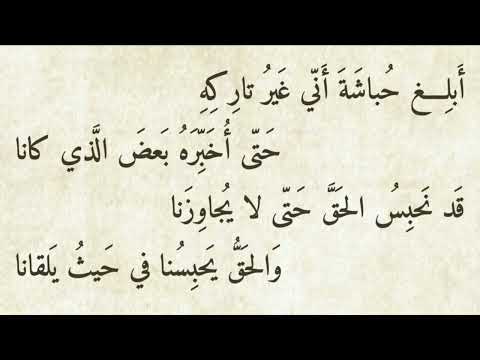 أَبلِــغ حُباشَةَ أَنّي غَيرُ تارِكِهِ
حَتّى أُخَبِّرَهُ بَعضَ الَّذي كانا
قَد نَحبِسُ الحَقَّ حَتّى لا يُجاوِزَنا
وَالحَقُّ يَحبِسُنا في حَيثُ يَلقانا